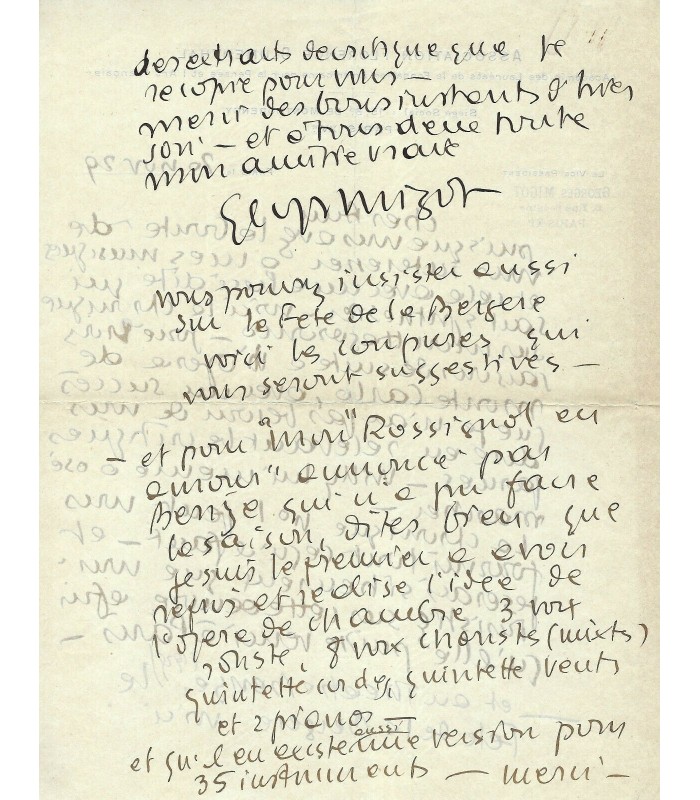 des extraits de critique que je
recopie pour vous
merci des bons instants d'hier
soir — et à tous deux toute
mon amitié vraie
Georges Migot
vous pouvez insister aussi
sur la Fête de la Bergère
voici les coupures qui
vous seront suggestives —
— et pour "mon" Rossignol en
amour" annoncé par
qui n'a pu faire
la saison, dites bien que
je suis le premier a avoir
repris et réalisé l'idée de
l'opéra de chambre 3 voix
soliste, 8 voix choristes (mixts)
quintette cordes, quintette vents
et 2 pianos
et qu'il en existe aussi une version pour
35 instruments — merci —